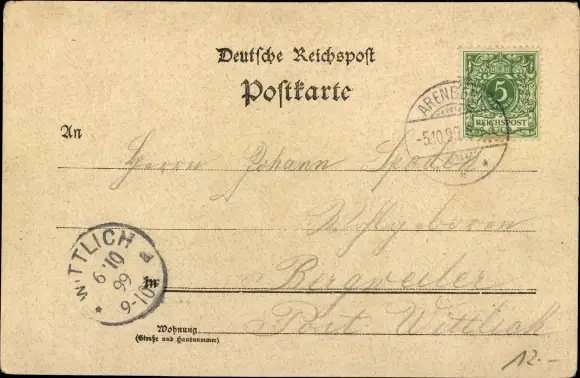 Deutsche Reichspost
Postkarte
5
REICHSPOST
-5.10.99
An
Herrn Johann Spoden
Wohlgeboren
WITTLICH
6 10
99
9-10
In Bergweiler
Wohnung
(Straße und Hausnummer)
Post Wittlich
12.-